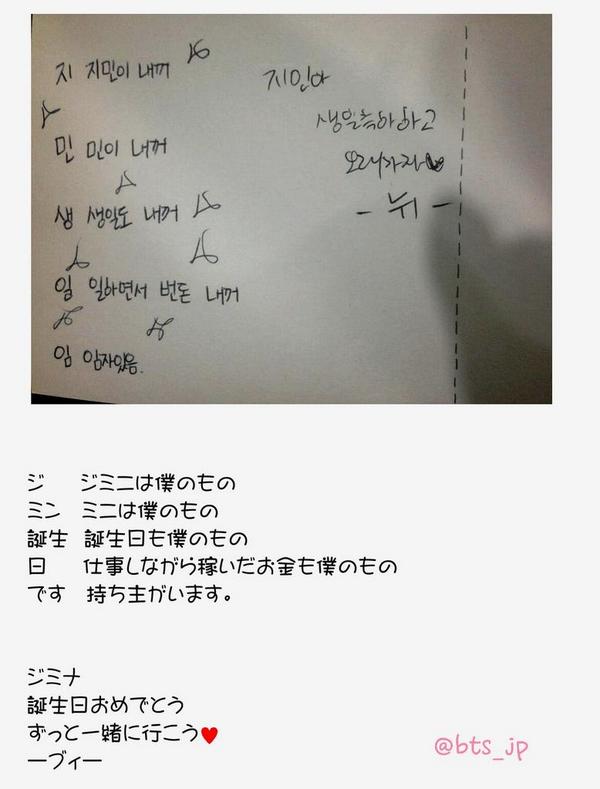 지 지민이 내꺼
민 민이 내꺼
생 생일도 내꺼
일 일하면서 번돈 내꺼
임 임자있음.
지민아
생일축하하고
오래가자♥
- 뷔 -
ジ ジミニは僕のもの
ミン ミニは僕のもの
誕生 誕生日も僕のもの
日 仕事しながら稼いだお金も僕のもの
です 持ち主がいます。
ジミナ
誕生日おめでとう
ずっと一緒に行こう♥
ーヴィー
@bts_jp